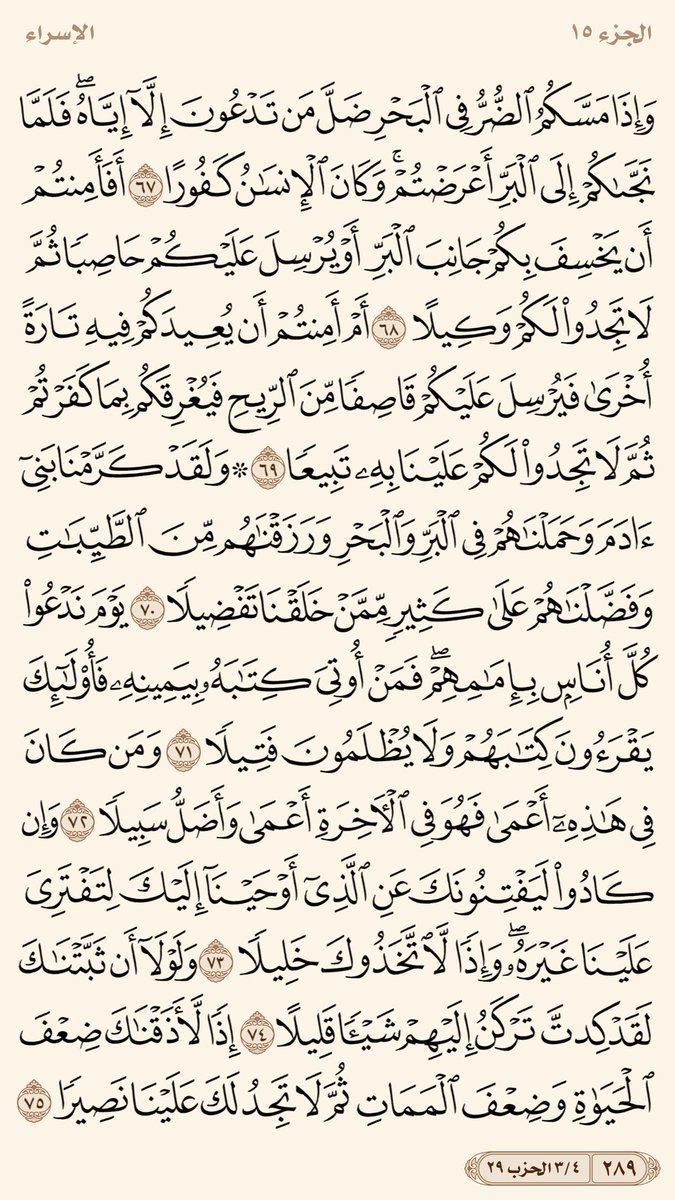 الجزء ١٥
الإسراء
وَإِذَا مَسَّكُمُ ٱلضُّرُّ فِي ٱلۡبَحۡرِ ضَلَّ مَن تَدۡعُونَ إِلَّآ إِيَّاهُۖ فَلَمَّا
نَجَّىٰكُمۡ إِلَى ٱلۡبَرِّ أَعۡرَضۡتُمۡۚ وَكَانَ ٱلۡإِنسَٰنُ كَفُورًا ٦٧ أَفَأَمِنتُمۡ
أَن يَخۡسِفَ بِكُمۡ جَانِبَ ٱلۡبَرِّ أَوۡ يُرۡسِلَ عَلَيۡكُمۡ حَاصِبٗا ثُمَّ
لَا تَجِدُواْ لَكُمۡ وَكِيلًا ٦٨ أَمۡ أَمِنتُمۡ أَن يُعِيدَكُمۡ فِيهِ تَارَةً
أُخۡرَىٰ فَيُرۡسِلَ عَلَيۡكُمۡ قَاصِفٗا مِّنَ ٱلرِّيحِ فَيُغۡرِقَكُم بِمَا كَفَرۡتُمۡ
ثُمَّ لَا تَجِدُواْ لَكُمۡ عَلَيۡنَا بِهِۦ تَبِيعٗا ٦٩ ۞ وَلَقَدۡ كَرَّمۡنَا بَنِيٓ
ءَادَمَ وَحَمَلۡنَٰهُمۡ فِي ٱلۡبَرِّ وَٱلۡبَحۡرِ وَرَزَقۡنَٰهُم مِّنَ ٱلطَّيِّبَٰتِ
وَفَضَّلۡنَٰهُمۡ عَلَىٰ كَثِيرٖ مِّمَّنۡ خَلَقۡنَا تَفۡضِيلٗا ٧٠ يَوۡمَ نَدۡعُواْ
كُلَّ أُنَاسِۭ بِإِمَٰمِهِمۡۖ فَمَنۡ أُوتِيَ كِتَٰبَهُۥ بِيَمِينِهِۦ فَأُوْلَٰٓئِكَ
يَقۡرَءُونَ كِتَٰبَهُمۡ وَلَا يُظۡلَمُونَ فَتِيلٗا ٧١ وَمَن كَانَ
فِي هَٰذِهِۦٓ أَعۡمَىٰ فَهُوَ فِي ٱلۡأٓخِرَةِ أَعۡمَىٰ وَأَضَلُّ سَبِيلٗا ٧٢ وَإِن
كَادُواْ لَيَفۡتِنُونَكَ عَنِ ٱلَّذِيٓ أَوۡحَيۡنَآ إِلَيۡكَ لِتَفۡتَرِيَ
عَلَيۡنَا غَيۡرَهُۥۖ وَإِذٗا لَّٱتَّخَذُوكَ خَلِيلٗا ٧٣ وَلَوۡلَآ أَن ثَبَّتۡنَٰكَ
لَقَدۡ كِدتَّ تَرۡكَنُ إِلَيۡهِمۡ شَيۡـٔٗا قَلِيلًا ٧٤ إِذٗا لَّأَذَقۡنَٰكَ ضِعۡفَ
ٱلۡحَيَوٰةِ وَضِعۡفَ ٱلۡمَمَاتِ ثُمَّ لَا تَجِدُ لَكَ عَلَيۡنَا نَصِيرٗا ٧٥
٢٨٩ ٣/٤ الحزب ٢٩